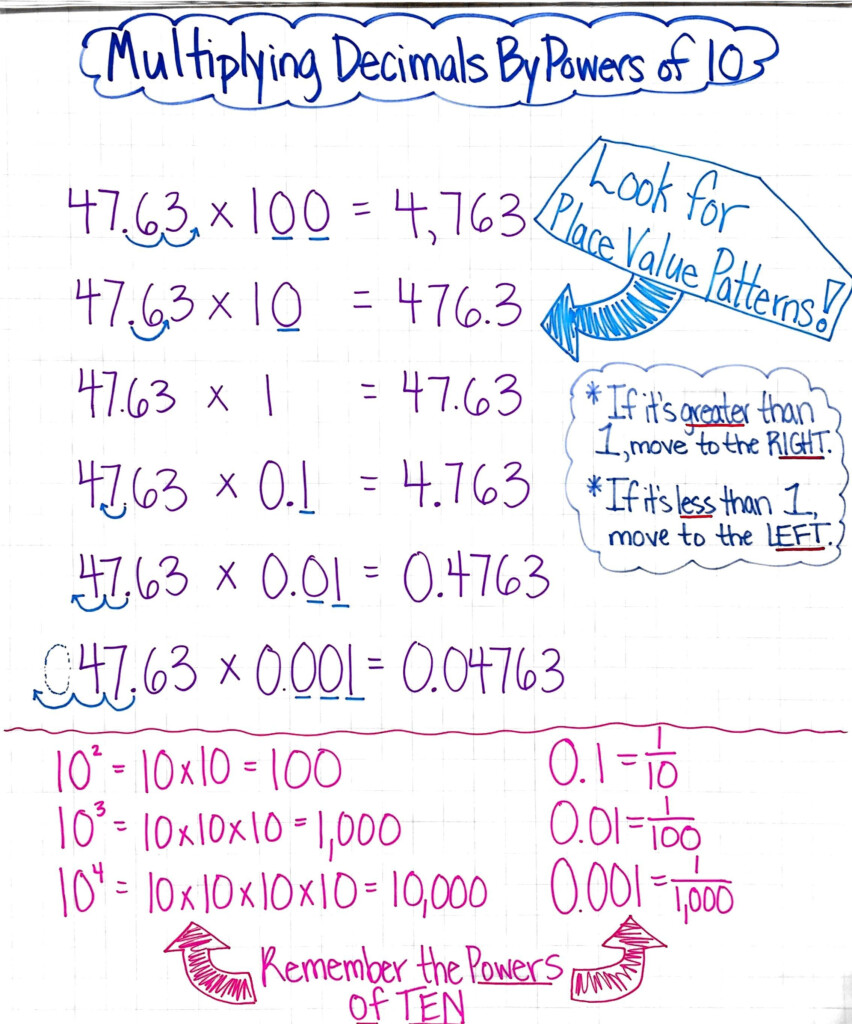 Multiplying Decimals By Powers of 10
47.63 × 100 = 4,763
47.63 × 10 = 476.3
47.63 × 1 = 47.63
47.63 × 0.1 = 4.763
47.63 × 0.01 = 0.4763
047.63 × 0.001 = 0.04763
Look for
Place Value Patterns!
*If it's greater than
1, move to the RIGHT.
*If it's less than 1,
move to the LEFT.
10² = 10×10 = 100
10³ = 10×10×10 = 1,000
10⁴ = 10×10×10×10 = 10,000
0.1 = 1/10
0.01 = 1/100
0.001 = 1/1,000
Remember the Powers
of TEN